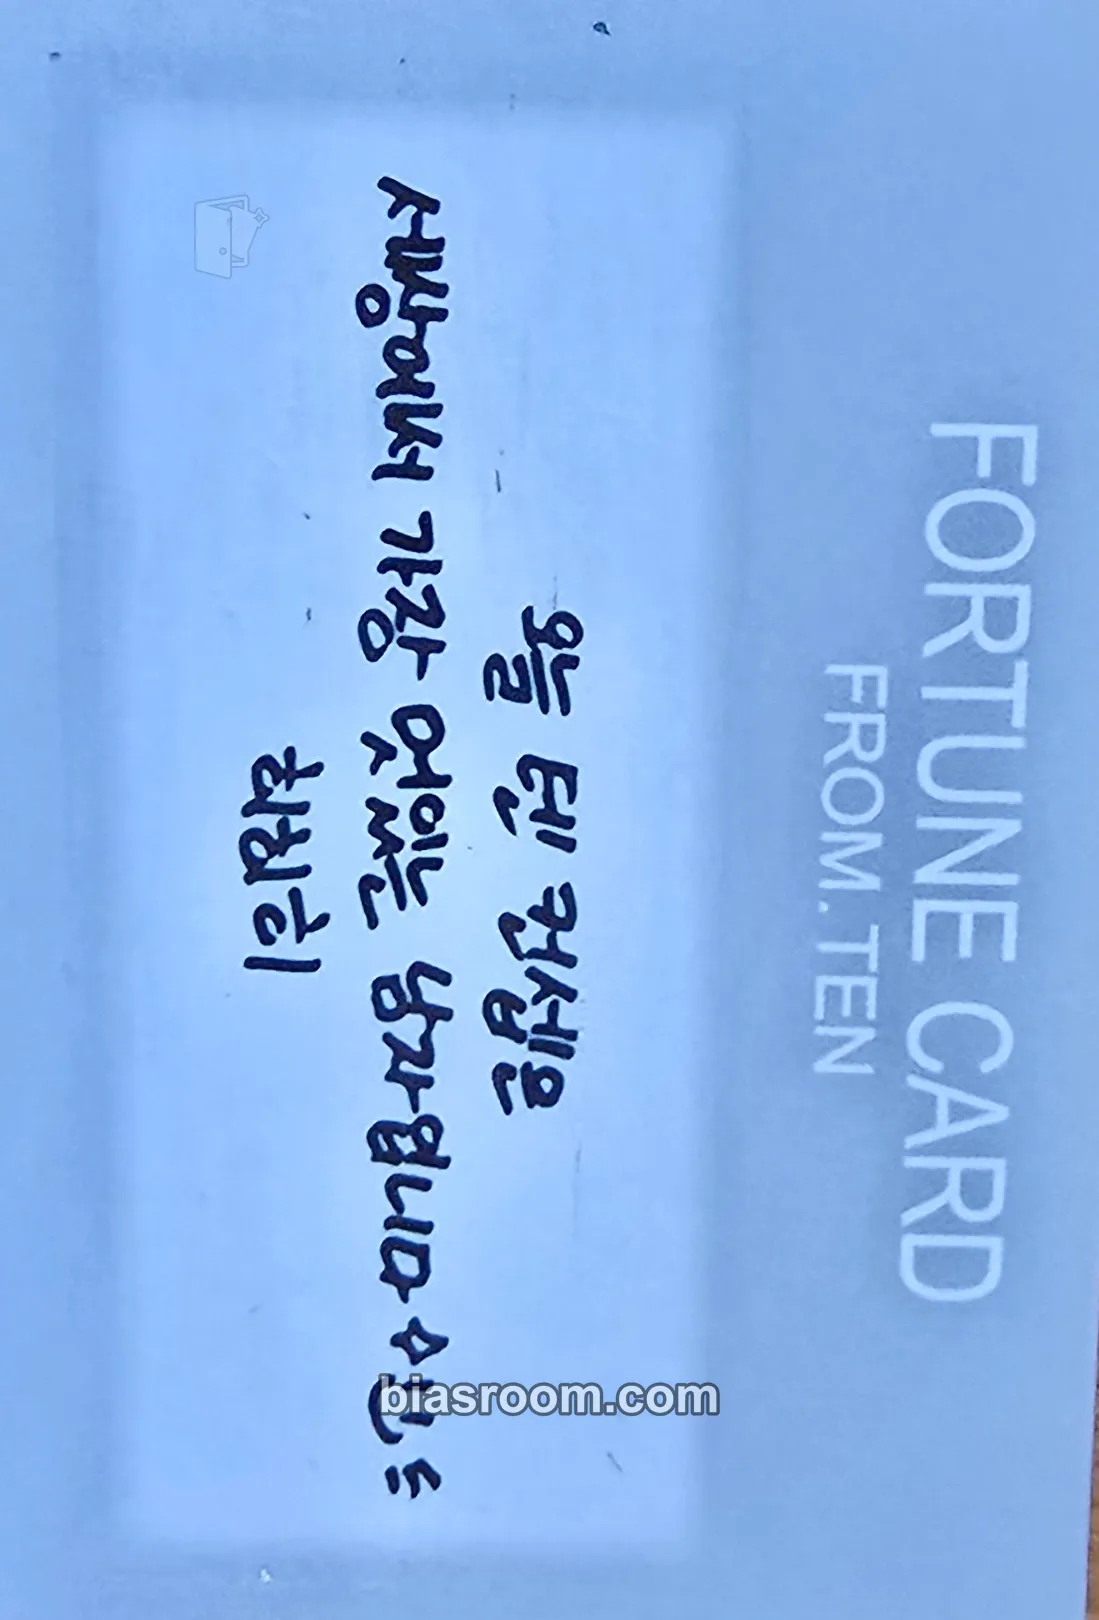 FORTUNE CARD
FROM. TEN
오늘 텐 컨셉은
세상에서 가장 멋있는 남자입니다
biasroom.com